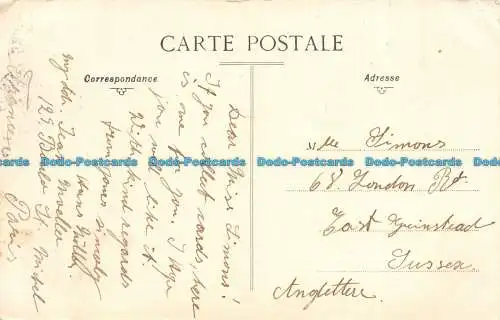 CARTE POSTALE
Correspondance
Adresse
Dear Miss Simons!
If you collect cards, here
is one for you. I hope
you will like it.
With kind regards
from yours sincerely
Hans Müller
my adr. Jean Moeller
129 Boul. St. Michel
Paris
Mlle Simons
68. London Rd.
East Grinstead
Sussex.
Angleterre
Dodo-Postcards Dodo-Postcards Dodo-Postcards Dodo-Postcards Dodo-Postcards Dodo-Postcards